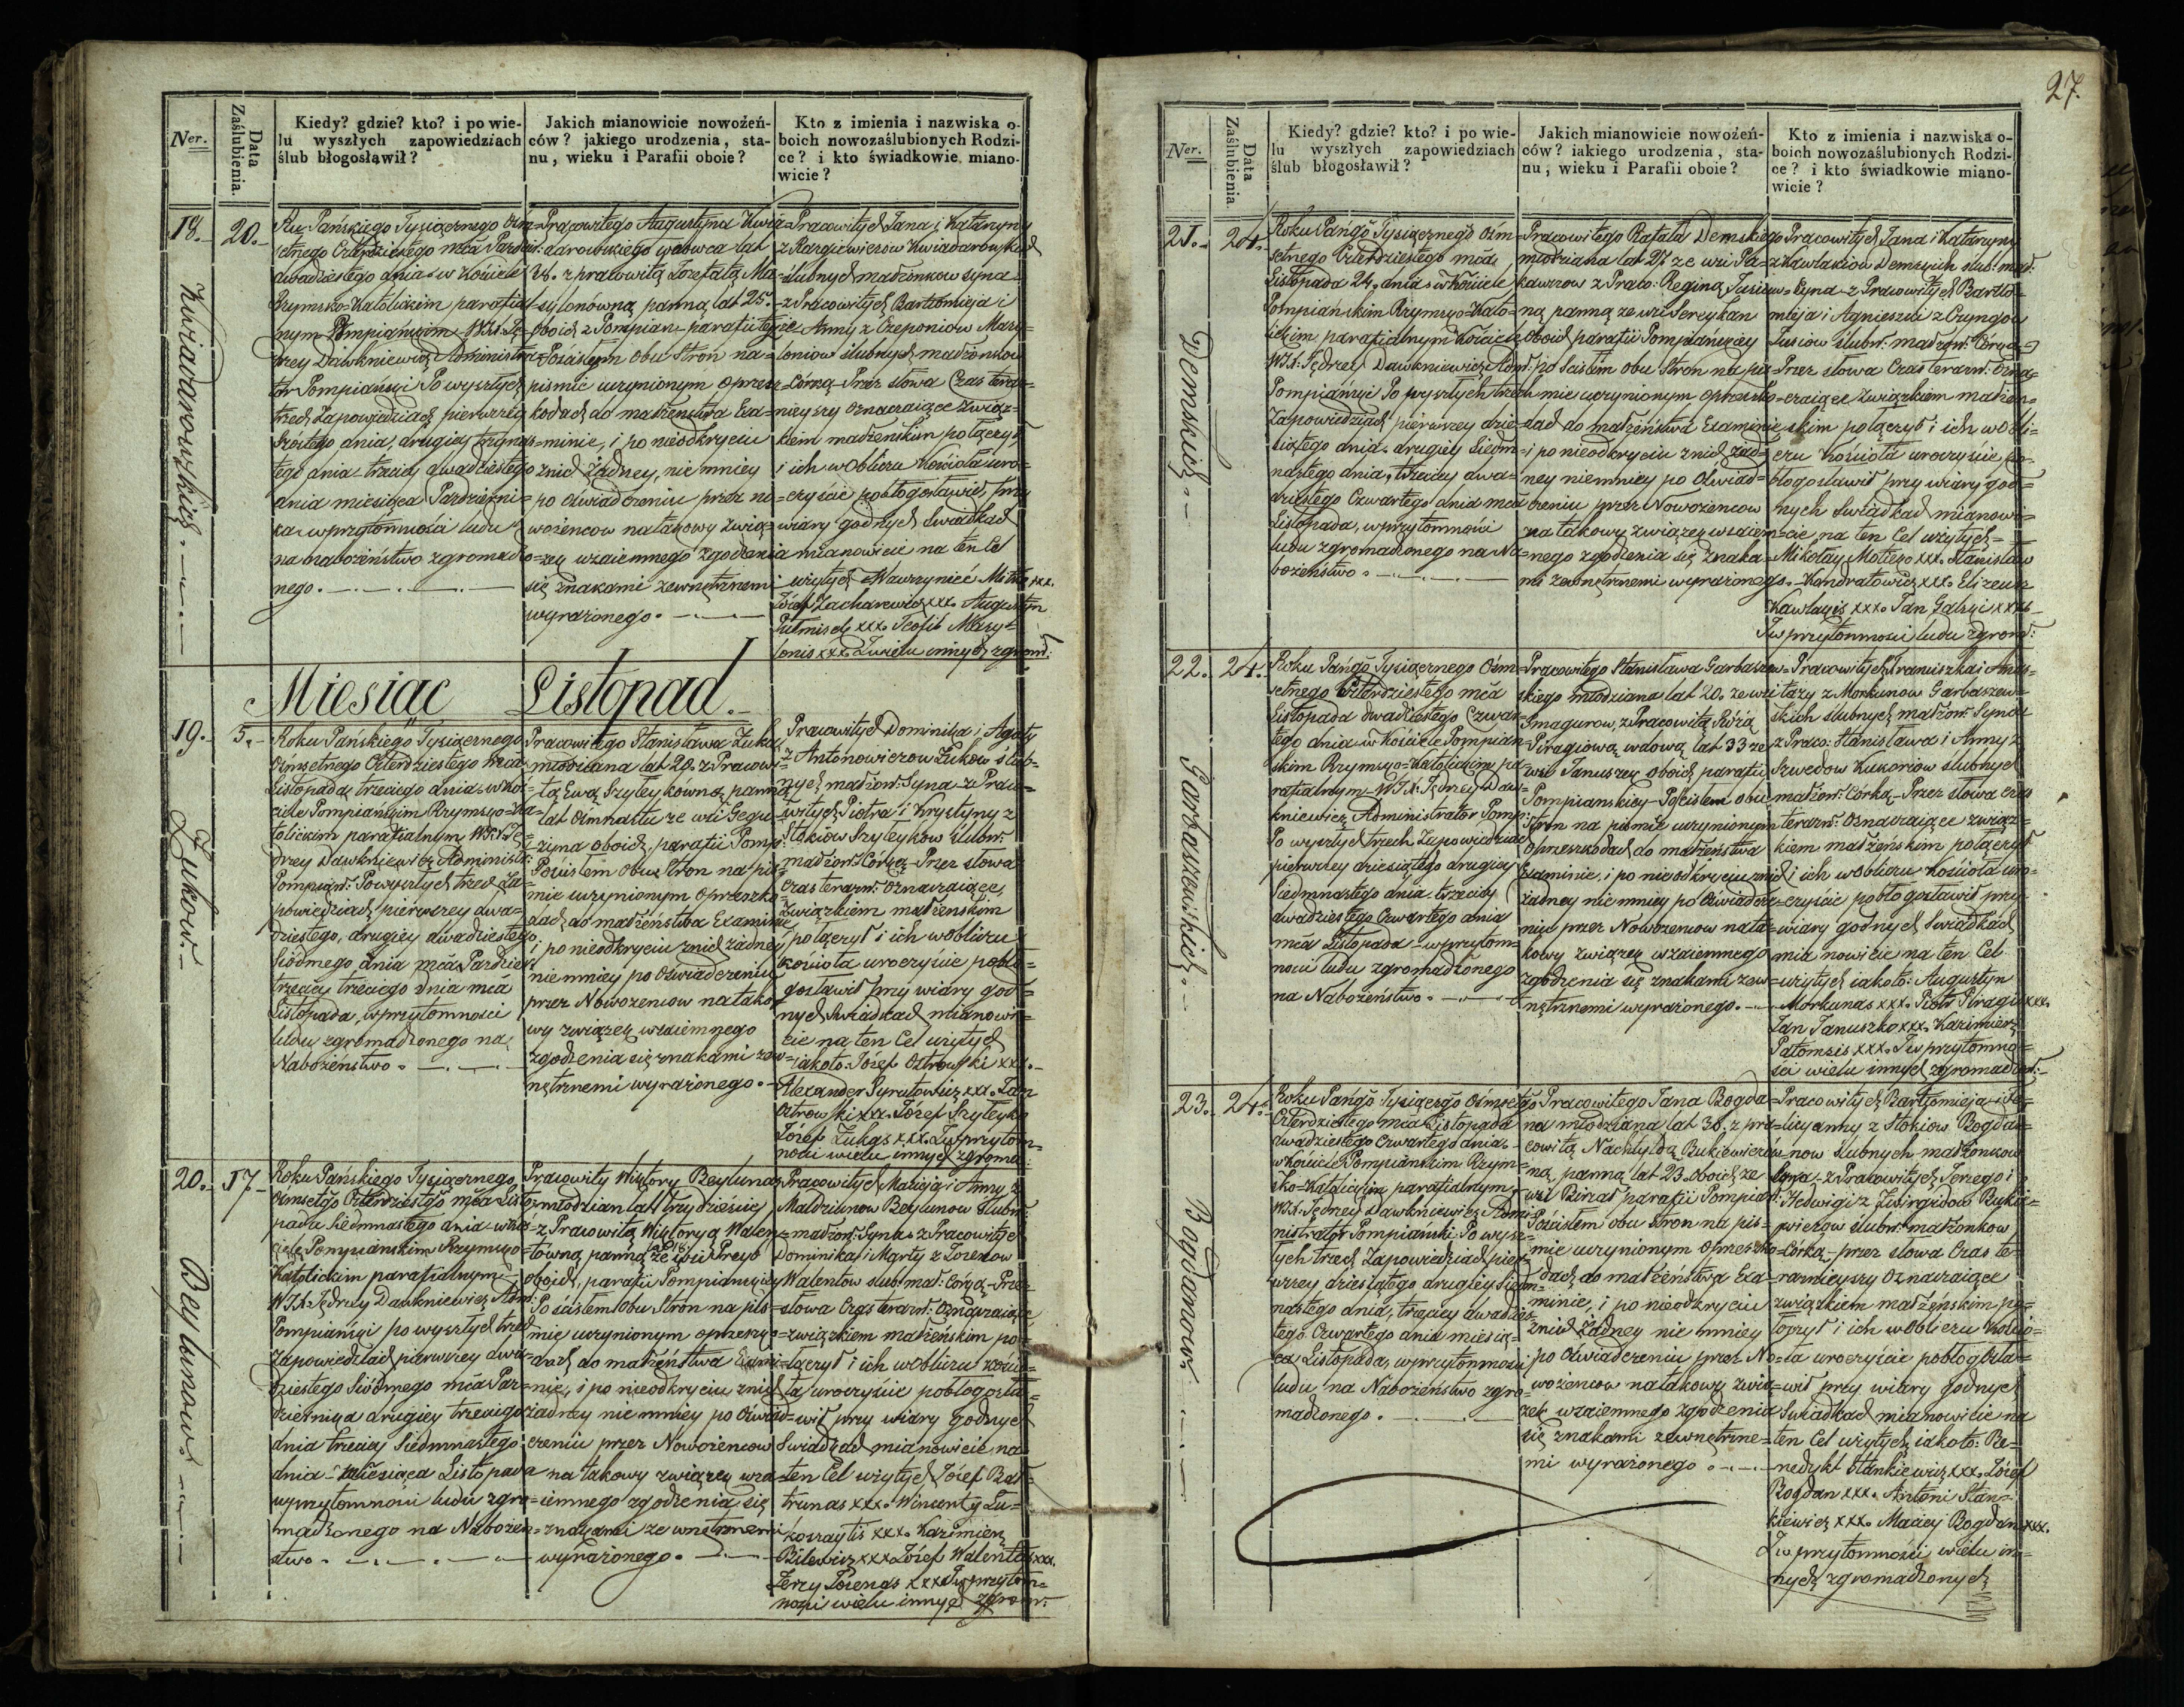 27.
Ner.
Data Zaślubienia.
Kiedy? gdzie? kto? i po wie-
lu wyszłych zapowiedziach
ślub błogosławił?
Jakich mianowicie nowożeń-
ców? jakiego urodzenia, sta-
nu, wieku i Parafii oboie?
Kto z imienia i nazwiska o-
boich nowozaślubionych Rodzi-
ce? i kto świadkowie miano-
wicie?
18.
20.
dwudziestego dnia w Kościele
Rzymsko-Katolickim parafial-
drey Dawkniewicz Administra-
tor Pompiański Po wyszłych
trzech Zapowiedziach pierwszey
tego dnia trzeciey dwudziestego
dnia miesiąca Pazdzierni-
ka w przytomności ludu
na nabożeństwo zgromadzo-
nego.
Pracowitego Augustyna Kwia-
z pracowitą Jozefatą Ma-
panną lat 25.
Po ścisłym obu Stron na
pismie uczynionym oprzesz-
kodach do małżenstwa Exa-
minie, i po nieodkryciu
znich żadney, nie mniey
po oświadczeniu przez no-
wożencow na takowy zwią-
zek wzaiemnego zgodzenia
się znakami zewnętrznemi
wyrażonego.
Pracowitych Jana i Katarzyny
ślubnych małżonkow syna
z Pracowitych Bartłomieja i
ślubnych małżonkow
Córką Przez słowa Czas teraz-
nieyszy oznaczaiące Związ-
kiem małżenskim połączył
i ich w Obliczu Kościoła uro-
czyście pobłogosławił, przy
wiary godnych Swiadkach
mianowicie na ten Cel
użytych Wawrzyniec
Józef Zacharewicz xxx. Augustyn
xxx. Teofil
xxx. Z wielu innych zgrom:
Miesiac Listopad.
19.
5.
Żukow.
Roku Pańskiego Tysiącznego
Ośmsetnego Czterdziestego mca
Listopada trzeciego dnia w Koś-
ciele Pompiańskim Rzymsko-Ka-
tolickim parafialnym WJX. Ję-
drzey Dawkniewicz Administr:
Pompiań: Po wyszłych trzech Za-
powiedziach pierwszey dwu-
dziestego, drugiey dwudziestego
Siódmego dnia mca Pazdzier:
trzeciey trzeciego dnia mca
Listopada, w przytomności
ludu zgromadzonego na
Nabożeństwo.
Pracowitego Stanisława Żuka
młodziana lat 20. z Pracowi-
tą Ewą Szyleykowną panną
lat Ośmnastu ze wsi
oboich parafii Pomp:
Po ścisłem obu Stron na pis-
mie uczynionym oprzeszko-
dach do małżeństwa Examinie
i po nieodkryciu znich żadney
nie mniey po Oświadczeniu
przez Nowożencow na tako-
wy związek wzaiemnego
zgodzenia się znakami zew-
nętrznemi wyrażonego.
Pracowitych Dominika i Agaty
z Antonowiczow Żukow ślub-
nych małżon: Syna z Praco-
witych Piotra i Krystyny z
Stokiow Szyleykow ślubn:
małżon: Córką Przez słowa
czas terazn: Oznaczaiące
Związkiem małżenskim
połączył i ich w obliczu
kościoła uroczyście pobło-
gosławił przy wiary god-
nych Swiadkach, mianowi-
cie na ten Cel użytych
iakoto: Józef Ostrowski xxx.
Alexander Syrutowicz xxx. Jan
Ostrowski xx. Józef Szyleyko
Józef Żukas xxx. I w przytom-
ności wielu innych zgroma:
20.
17.
Beylunow.
Roku Pańskiego Tysiącznego
Ośmsetgo Czterdziestgo mca Listo-
pada Siedmnastego dnia w Koś-
ciele Pompiańskim Rzymsko-
Katolickim parafialnym
WJX. Jędrzey Dawkniewicz Adm:
Pompiański po wyszłych trzech
Zapowiedziach pierwszey dwu-
dziestego Siódmego mca Paz-
dziernika drugiey trzeciego
dnia trzeciey Siedmnastego
dnia miesiąca Listopada
w przytomności ludu zgro-
madzonego na Nabożeń-
stwo.
Pracowity Wiktory Beylunas
młodzian lat trzydzieście
z Pracowitą Wiktoryą Walen-
towną panną
oboich, parafii Pompiańskiey
Po ścisłem Obu Stron na pis-
mie uczynionym oprzeszko-
dach do małżeństwa Exami-
nie, i po nieodkryciu znich
żadney nie mniey po Oświad-
czeniu przez Nowożencow
na takowy związek wza-
iemnego zgodzenia się
znakami zewnętrznemi
wyrażonego.
Pracowitych Macieja i Anny z
Beylunow ślubn:
małżon: Syna z Pracowitych
Dominika i Marty z
Walentow ślub: mał: Córką Przez
słowa Czas terazn: Oznaczaiące
związkiem małżeńskim po-
łączył i ich w obliczu Kościo-
ła uroczyście pobłogosła-
wił przy wiary godnych
Swiadkach mianowicie na
ten Cel użytych Józef
xxx. Wincenty
xxx. Kazimierz
Bilewicz xxx Józef Walentas xxx.
Jerzy xxx I w przytom-
ności wielu innych zgrom:
Ner.
Data Zaślubienia.
Kiedy? gdzie? kto? i po wie-
lu wyszłych zapowiedziach
ślub błogosławił?
Jakich mianowicie nowożeń-
ców? iakiego urodzenia, sta-
nu, wieku i Parafii oboie?
Kto z imienia i nazwiska o-
boich nowozaślubionych Rodzi-
ce? i kto świadkowie miano-
wicie?
21.
24.
Demskich.
Roku Pańgo Tysiącznego Ośm-
setnego Czterdziestego mca
Listopada 24. dnia w Kościele
Pompiańskim Rzymsko-Kato-
lickim parafialnym Kościele
WJX. Jędrzey Dawkniewicz Adm:
Pompiański Po wyszłych trzech
Zapowiedziach pierwszey dzie-
siątego dnia, drugiey Siedm-
nastego dnia, trzeciey dwu-
dziestego Czwartego dnia mca
Listopada, w przytomności
ludu zgromadzonego na Na-
bożeństwo.
Pracowitego Rafała Demskiego
młodziana lat 27 ze wsi
z Praco: Reginą
panną ze wsi
Oboich parafii Pompiańskiey
po Ścisłem obu Stron na pis-
mie uczynionym oprzeszko-
dach do małżeństwa Examinie
i po nieodkryciu znich żad-
ney niemniey po Oświad-
czeniu przez Nowożencow
na takowy związek wzaiem-
nego zgodzenia się znaka-
mi zewnętrznemi wyrażonego.
Pracowitych Jana i Katarzyny
Demskich ślub: mał:
Syna z Pracowitych Bartło-
mieja i Agnieszki z
ślubn: małżon: Córką
Przez słowa Czas terazn: Ozna-
czaiące Związkiem małżeń-
skim połączył i ich w obli-
czu Kościoła uroczyście po-
błogosławił przy wiary god-
nych Swiadkach mianowi-
cie, na ten Cel użytych
Mikołay xxx. Stanisław
Kondratowicz xxx. Elizeusz
xxx. Jan xxx
I w przytomności ludu zgrom:
22.
24.
Garbaszewskich.
Roku Pańgo Tysiącznego Ośm-
setnego Czterdziestego mca
Listopada dwudziestego Czwar-
tego dnia w Kościele Pompiań-
skim Rzymsko-Katolickim pa-
rafialnym WJX. Jędrzey Daw-
kniewicz Administrator Pomp:
Po wyszłych trzech Zapowiedziach
pierwszey dziesiątego drugiey
Siedmnastego dnia trzeciey
dwudziestego Czwartego dnia
mca Listopada w przytom-
ności ludu zgromadzonego
na Nabożeństwo.
Pracowitego Stanisława Garbaszew-
skiego młodziana lat 20. ze wsi
z Pracowitą Rózą
Piragiową wdową lat 33 ze
wsi Januszek oboich parafii
Pompianskiey Po ścisłem obu
Stron na piśmie uczynionym
Oprzeszkodach do małżeństwa
Examinie, i po nieodkryciu znich
żadney nie mniey po Oświadcze-
niu przez Nowożencow na ta-
kowy związek wzaiemnego
zgodzenia się znakami zew-
nętrznemi wyrażonego.
Pracowitych Franciszka i Anas-
tazy z Morkunow Garbaszew-
skich ślubnych małżon: Syna
z Praco: Stanisława i Anny z
Szwedow Kukoriow ślubnych
małżon: Córką Przez słowa czas
terazn: Oznaczaiące związ-
kiem małżeńskim połączył
i ich w obliczu Kościoła uro-
czyście pobłogosławił przy
wiary godnych Swiadkach
mianowicie na ten Cel
użytych iakoto: Augustyn
Morkunas xxx. Piotr Piragis xxx.
Jan Januszko xxx. Kazimierz
xxx. I w przytomno-
ści wielu innych zgromadzon:
23.
24.
Bogdanow.
Roku Pańgo Tysiączgo Ośmsetgo
Czterdziestego mca Listopada
dwudziestego Czwartego dnia
w Kościele Pompiańskim Rzym-
sko-Katolickim parafialnym
WJX. Jędrzey Dawkniewicz Admi-
nistrator Pompiański Po wysz-
łych trzech Zapowiedziach pier-
wszey dziesiątego drugiey Siedm-
nastego dnia, trzeciey dwudzies-
tego Czwartego dnia miesią-
ca Listopada, w przytomności
ludu na Nabożeństwo zgro-
madzonego.
Pracowitego Jana Bogda-
na młodziana lat 36. z pra-
cowitą Nachtyldą Bukiewiczów-
ną, panną lat 23 oboich ze
wsi parafii Pompiań:
Po ścisłem obu stron na pis-
mie uczynionym Oprzeszko-
dach do małżeństwa Exa-
minie, i po nieodkryciu
znich Żadney nie mniey
po Oświadczeniu przez No-
wożencow na takowy zwią-
zek wzaiemnego zgodzenia
się znakami zewnętrzne-
mi wyrażonego.
Pracowitych Bartłomieja i Fe-
licyanny z Stokiow Bogda-
now ślubnych małżonkow
Syna z Pracowitych Jerzego i
Hedwigi z Bukie-
wiczow ślubn: małżonkow
Córką, przez słowa Czas te-
raznieyszy Oznaczaiące
związkiem małżeńskim po-
łączył i ich w Obliczu Kościo-
ła uroczyście pobłogosła-
wił przy wiary godnych
Swiadkach mianowicie na
ten Cel użytych iakoto: Be-
nedykt Stankiewicz xxx. Józef
Bogdan xxx. Antoni Stan-
kiewicz xxx. Maciey Bogdan xxx.
I w przytomności wielu in-
nych zgromadzonych